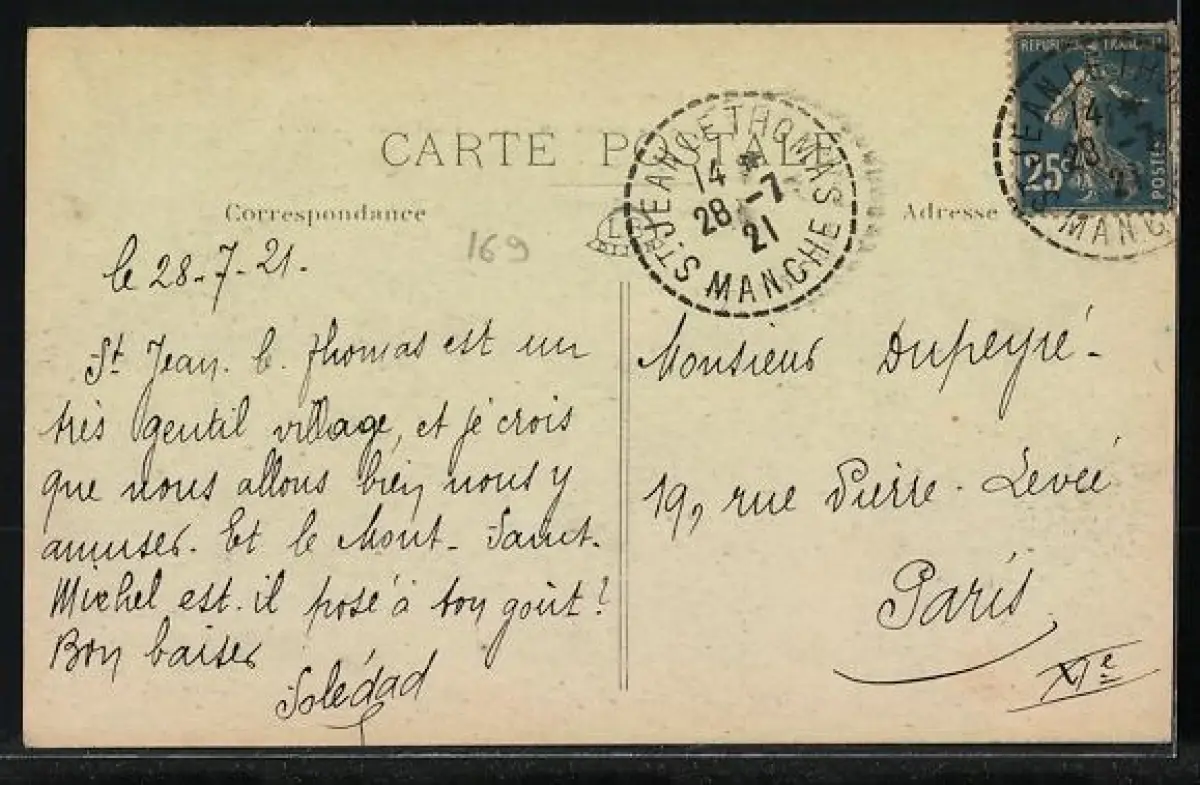 CARTE POSTALE
Correspondance
Adresse
169
ST JEAN LE THOMAS
14 *
28 -7
21
MANCHE
REPUBLIQUE FRANÇAISE
25c
POSTES
ST JEAN LE THOMAS
14 *
28 -7
21
MANCHE
le 28-7-21.
St Jean. l. Thomas est un
très gentil village, et je crois
que nous allons bien nous y
amuser. Et le Mont-Saint-
Michel est-il posé à ton goût?
Bon baiser
Solédad
Monsieur Dupeyré-
19, rue Pierre-Levée
Paris
XIe